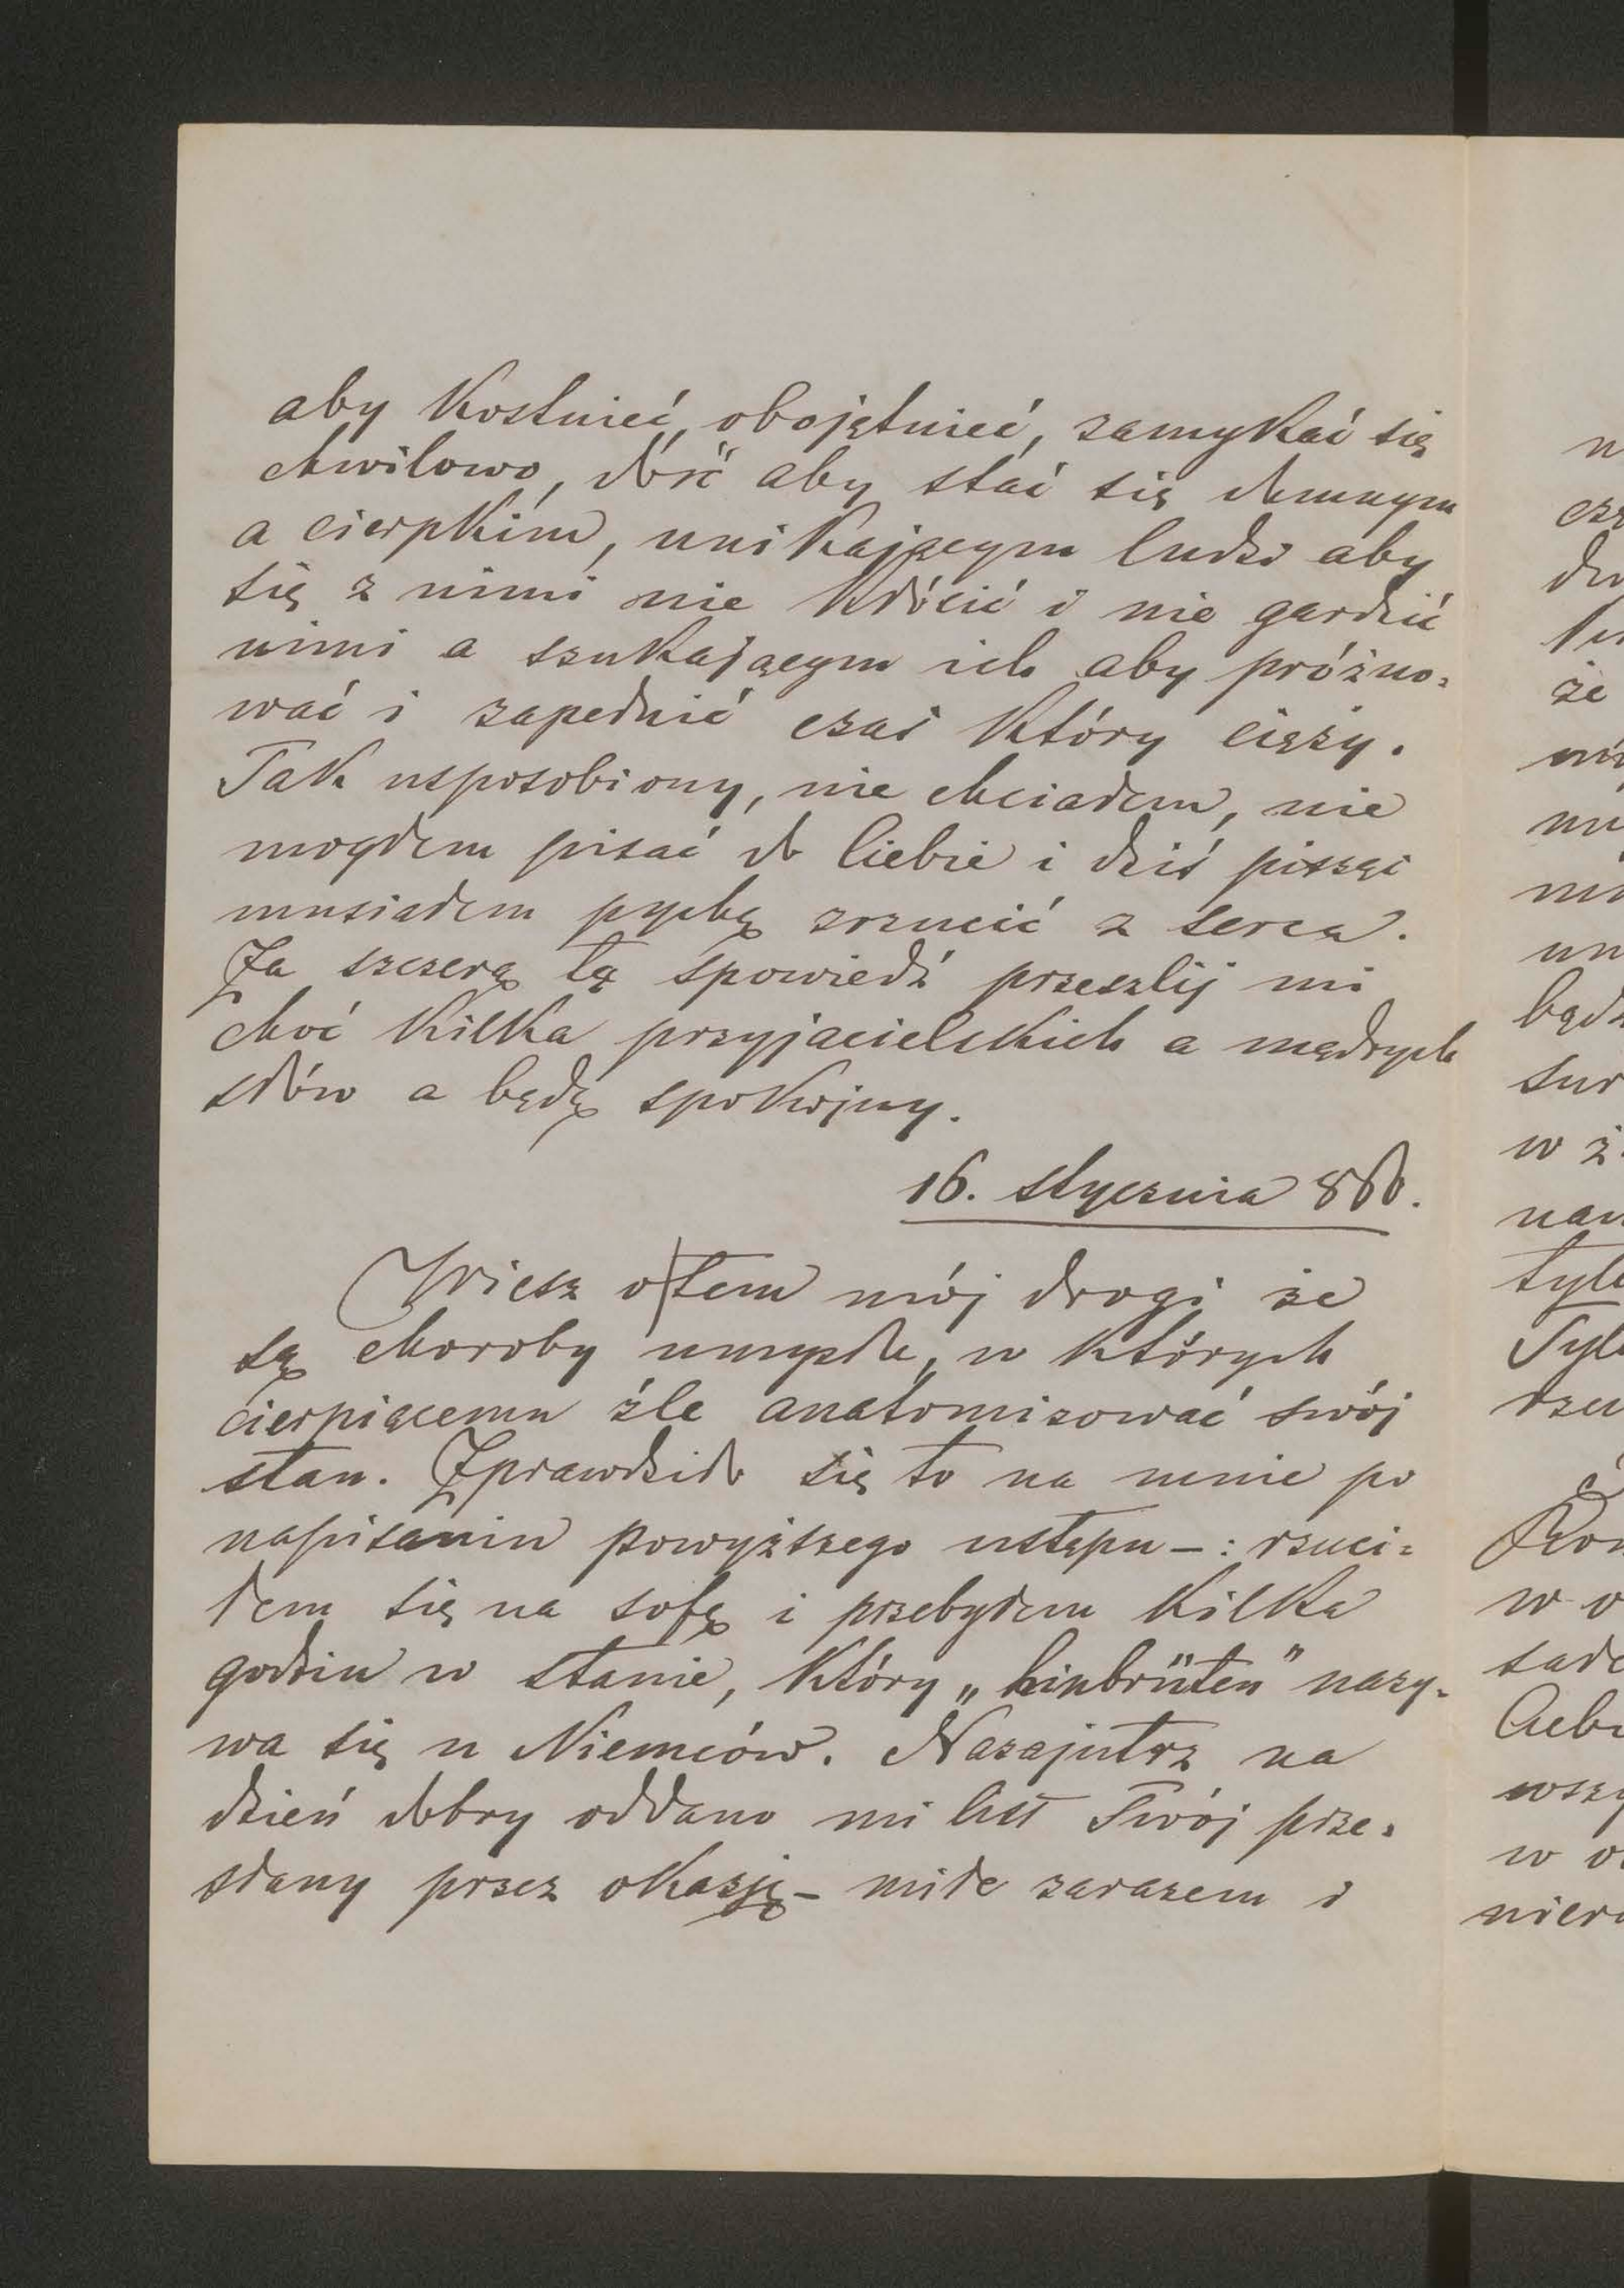 aby kostnieć, obojętnieć, zamykać się
chwilowo, dość aby stać się dumnym
a cierpkim, unikającym ludzi aby
się z nimi nie kłócić i nie gardzić
nimi a szukającym ich aby próżno=
wać i zapełnić czas który ciąży.
Tak usposobiony, nie chciałem, nie
mogłem pisać do Ciebie i dziś pisząc
musiałem pychę zrzucić z serca.
Za szczerą tą spowiedź przeszlij mi
choć kilka przyjacielskich a mądrych
słów a będę spokojny.
16. stycznia
Wiesz o tem mój drogi że
są choroby umysłu, w których
cierpiącemu źle anatomizować swój
stan. Zprawdziło się to na mnie po
napisaniu powyższego ustępu – : rzuci=
łem się na sofę i przebyłem kilka
godzin w stanie, który „hinbrüten" nazy=
wa się u Niemców. Nazajutrz na
dzień dobry oddano mi list Twój prze=
słany przez okazję – miłe zarazem i
n
że
będz
sur
w ż
tyle
Tyle
rzu
w o
w o